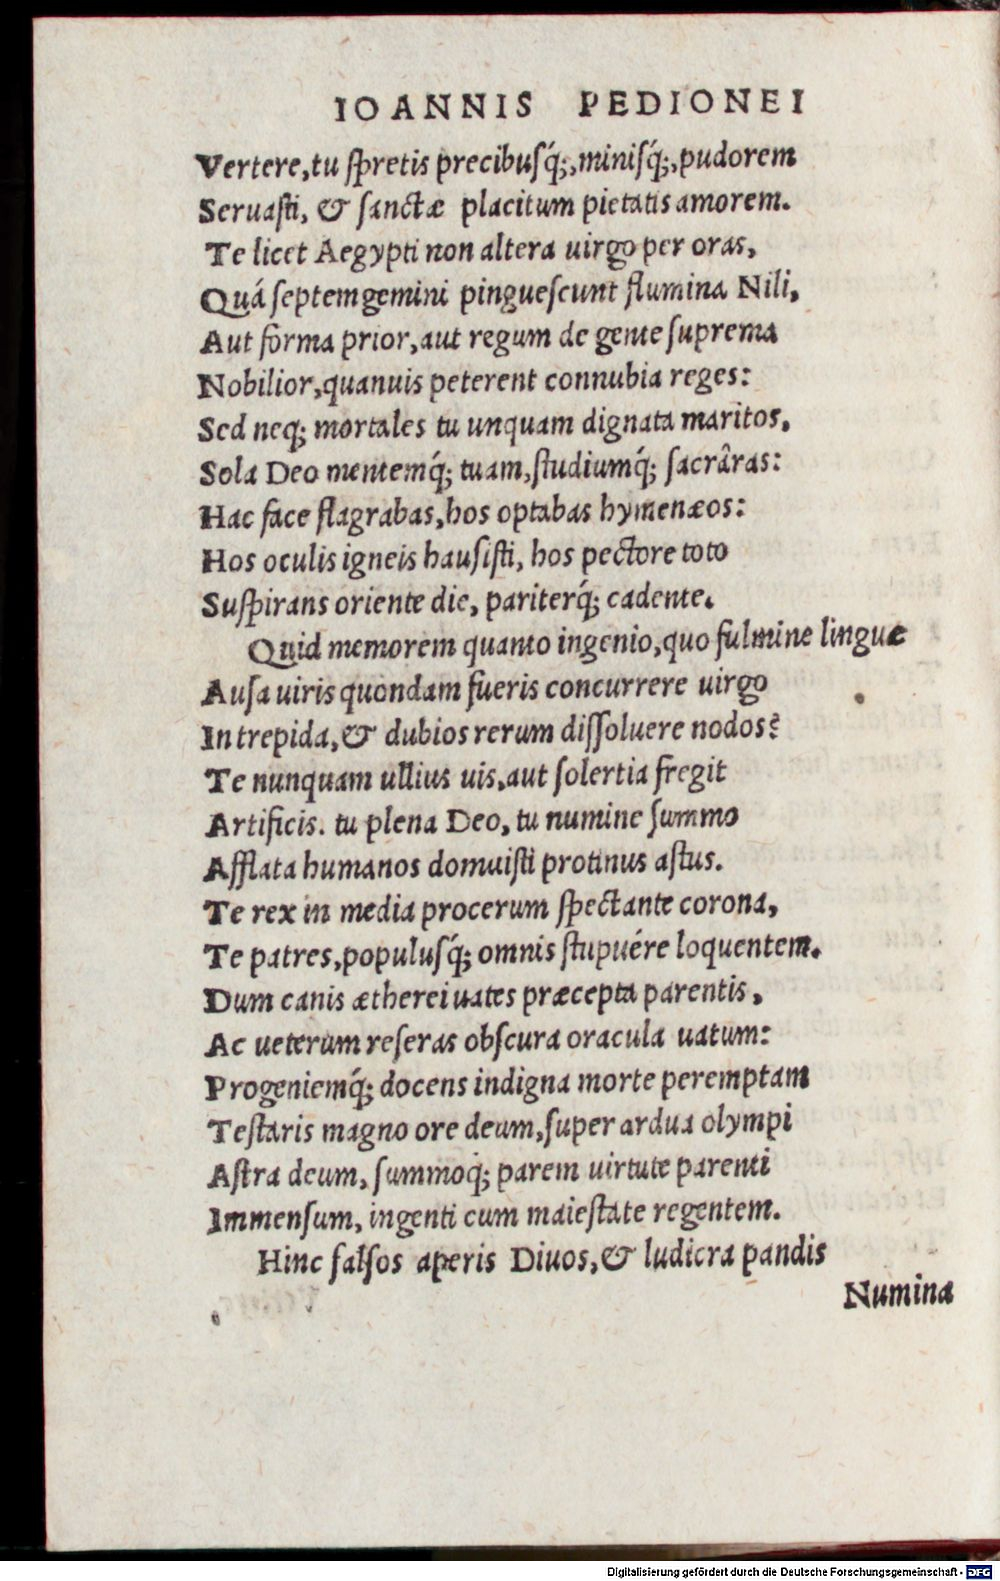 IOANNIS PEDIONEI
Vertere, tu ſpretis precibuſq́;, miniſq́;, pudorem
Seruaſti, & ſanctæ placitum pietatis amorem.
Te licet Aegypti non altera uirgo per oras,
Quá ſeptemgemini pingueſcunt flumina Nili,
Aut forma prior, aut regum de gente ſuprema
Nobilior, quanuis peterent connubia reges:
Sed neq; mortales tu unquam dignata maritos,
Sola Deo mentemq́; tuam, ſtudiumq́; ſacrâras:
Hac face flagrabas, hos optabas hymenæos:
Hos oculis igneis hauſiſti, hos pectore toto
Suſpirans oriente die, pariterq́; cadente.
Quid memorem quanto ingenio, quo fulmine linguæ
Auſa uiris quondam fueris concurrere uirgo
Intrepida, & dubios rerum diſſoluere nodos?
Te nunquam ullius uis, aut ſolertia fregit
Artificis. tu plena Deo, tu numine ſummo
Afflata humanos domuiſti protinus aſtus.
Te rex in media procerum ſpectante corona,
Te patres, populuſq́; omnis ſtupuére loquentem.
Dum canis ætherei uates præcepta parentis,
Ac ueterum reſeras obſcura oracula uatum:
Progeniemq́; docens indigna morte peremptam
Teſtaris magno ore deum, ſuper ardua olympi
Aſtra deum, ſummoq́; parem uirtute parenti
Immenſum, ingenti cum maieſtate regentem.
Hinc falſos aperis Diuos, & ludicra pandis
Numina
Digitalisierung gefördert durch die Deutsche Forschungsgemeinschaft - DFG